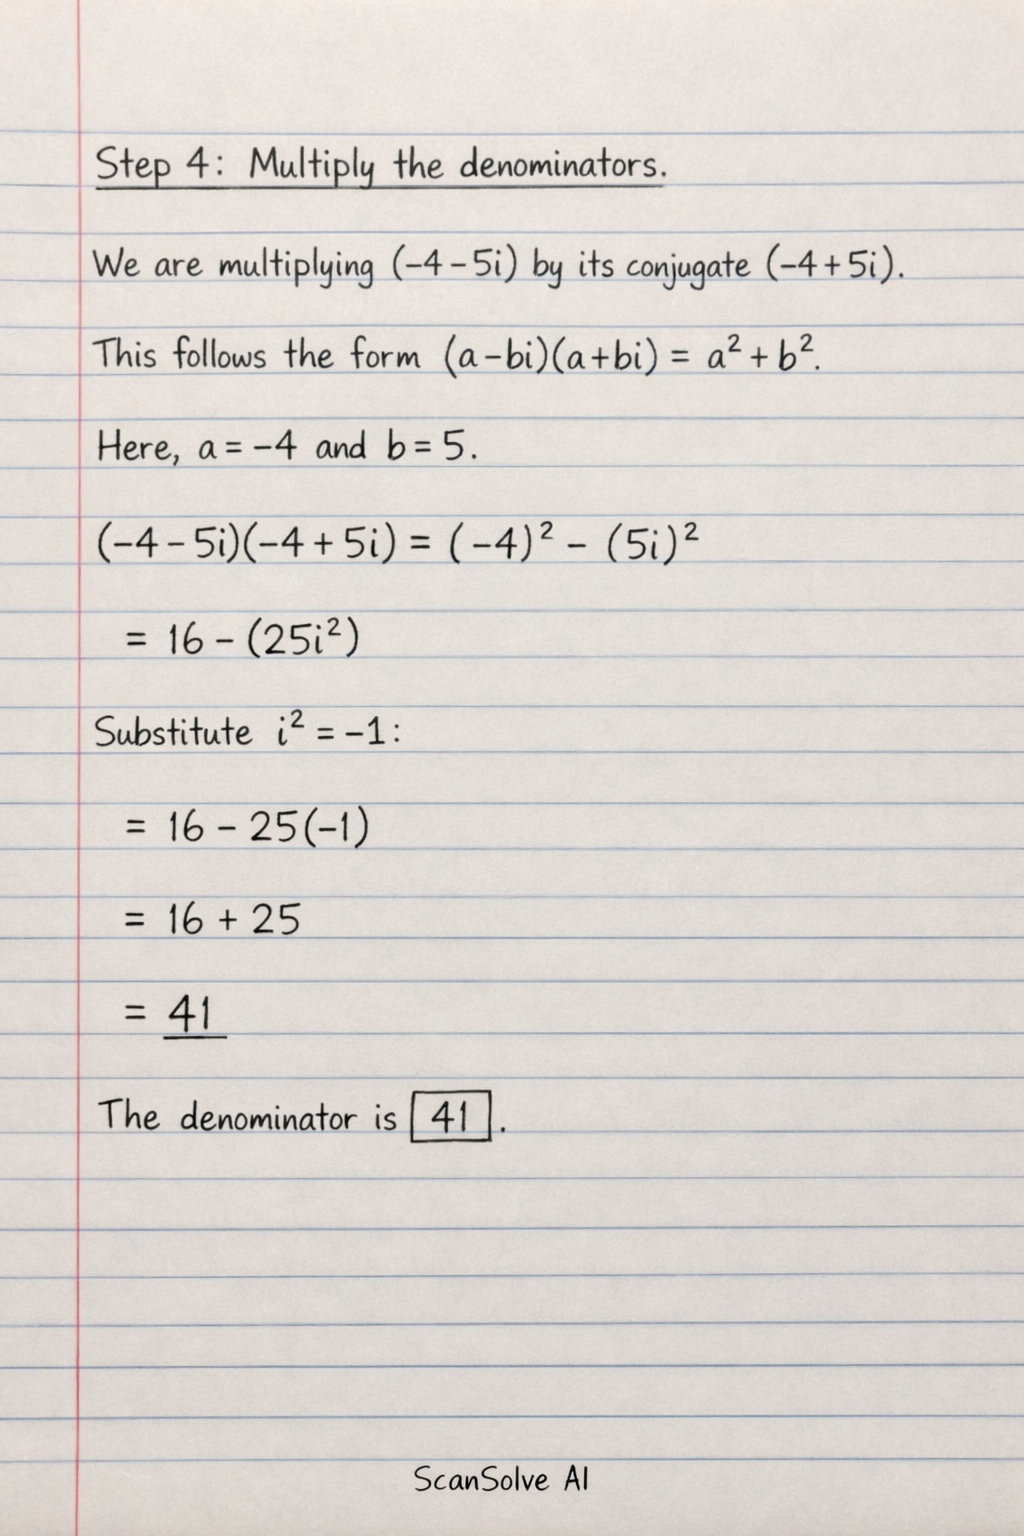 Step 4: Multiply the denominators.
We are multiplying (-4-5i) by its conjugate (-4+5i).
This follows the form (a-bi)(a+bi) = a² + b².
Here, a = -4 and b = 5.
(-4-5i)(-4+5i) = (-4)² - (5i)²
= 16 - (25i²)
Substitute i² = -1:
= 16 - 25(-1)
= 16 + 25
= 41
The denominator is 41.
ScanSolve AI